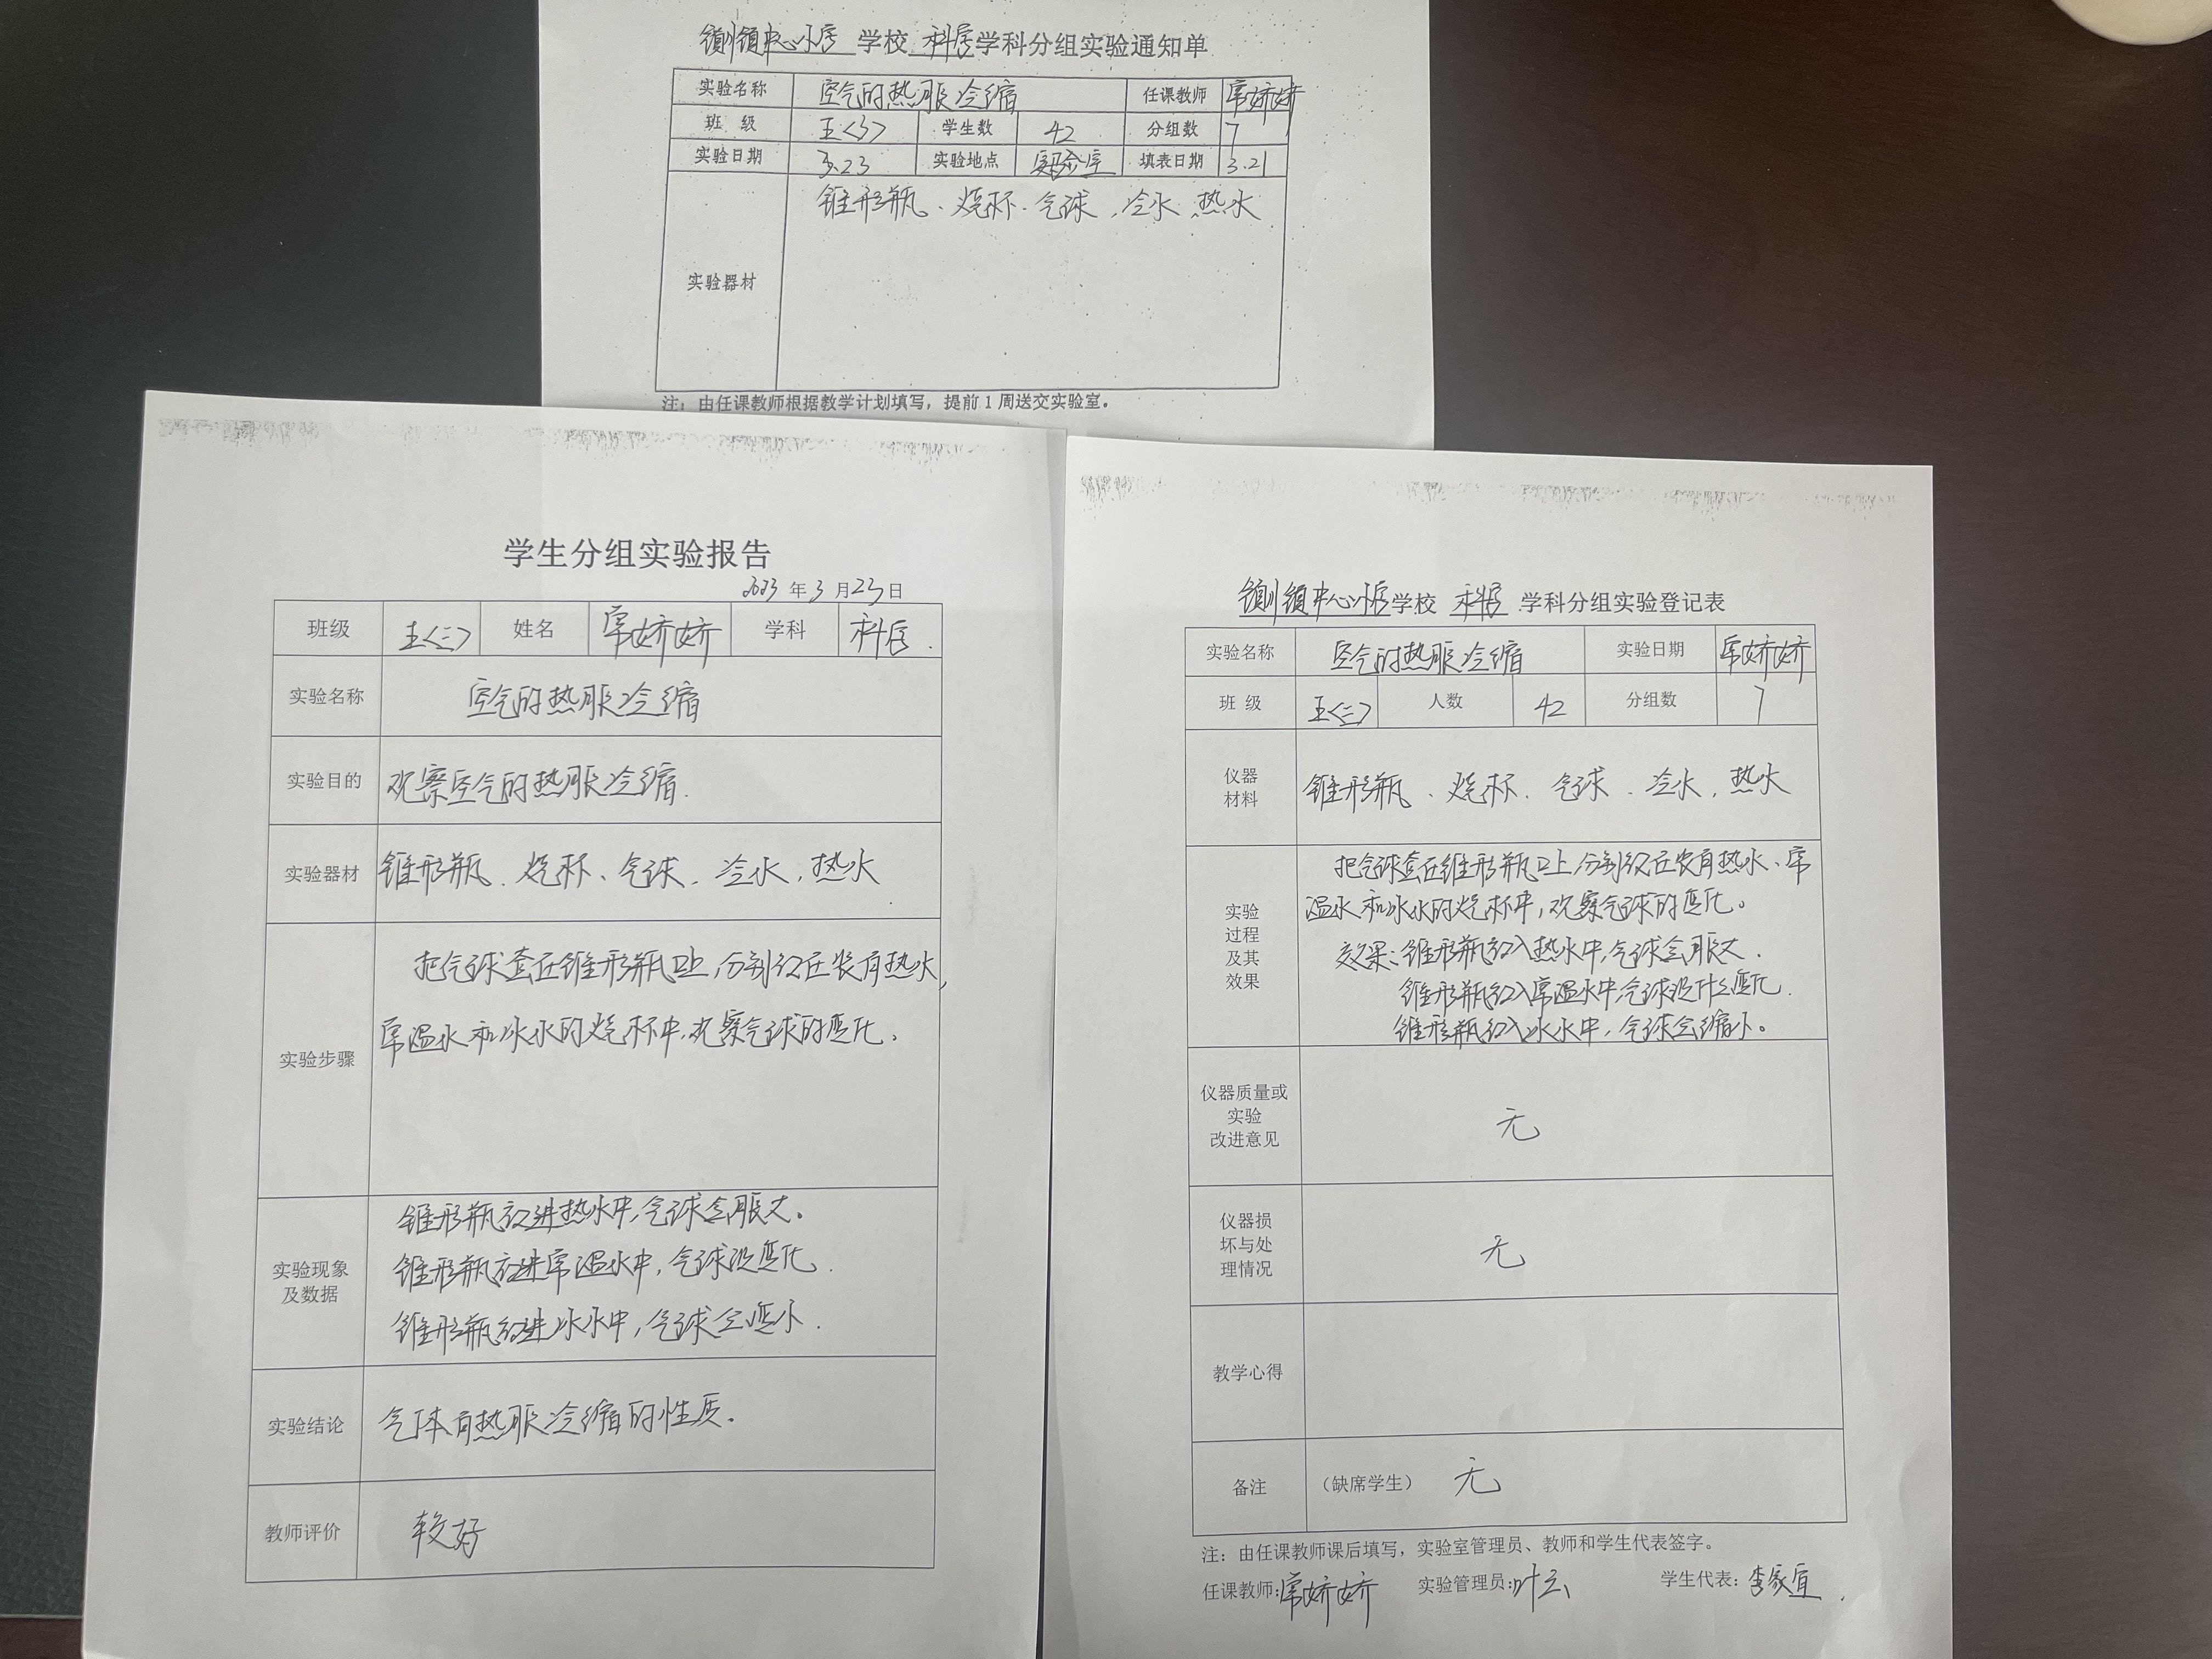 镇中心小学 学校 科学 学科分组实验通知单
实验名称 空气的热胀冷缩 任课教师 常娇娇
班 级 五<3> 学生数 42 分组数 7
实验日期 3.23 实验地点 实验室 填表日期 3.21
实验器材 锥形瓶、烧杯、气球、冷水、热水
注：由任课教师根据教学计划填写，提前1周送交实验室。
学生分组实验报告
2023 年 3 月 23 日
班级 五<三> 姓名 常娇娇 学科 科学.
实验名称 空气的热胀冷缩
实验目的 观察空气的热胀冷缩.
实验器材 锥形瓶、烧杯、气球、冷水，热水
实验步骤 把气球套在锥形瓶口上，分别放在装有热水，
常温水和冰水的烧杯中，观察气球的变化.
实验现象
及数据
锥形瓶放进热水中，气球会胀大。
锥形瓶放进常温水中，气球没变化.
锥形瓶放进冰水中，气球会变小.
实验结论 气体有热胀冷缩的性质.
教师评价 较好
镇中心小学 学校 科学 学科分组实验登记表
实验名称 空气的热胀冷缩 实验日期 常娇娇
班 级 五<三> 人数 42 分组数 7
仪器
材料
锥形瓶、烧杯、气球、冷水，热水
实验
过程
及其
效果
把气球套在锥形瓶口上，分别放在装有热水、常
温水和冰水的烧杯中，观察气球的变化。
效果：锥形瓶放入热水中，气球会胀大.
锥形瓶放入常温水中，气球没什么变化.
锥形瓶放入冰水中，气球会缩小。
仪器质量或
实验
改进意见
无
仪器损
坏与处
理情况
无
教学心得
备注 （缺席学生） 无
注：由任课教师课后填写，实验室管理员、教师和学生代表签字。
任课教师：常娇娇 实验管理员：叶云 学生代表：李家宜.